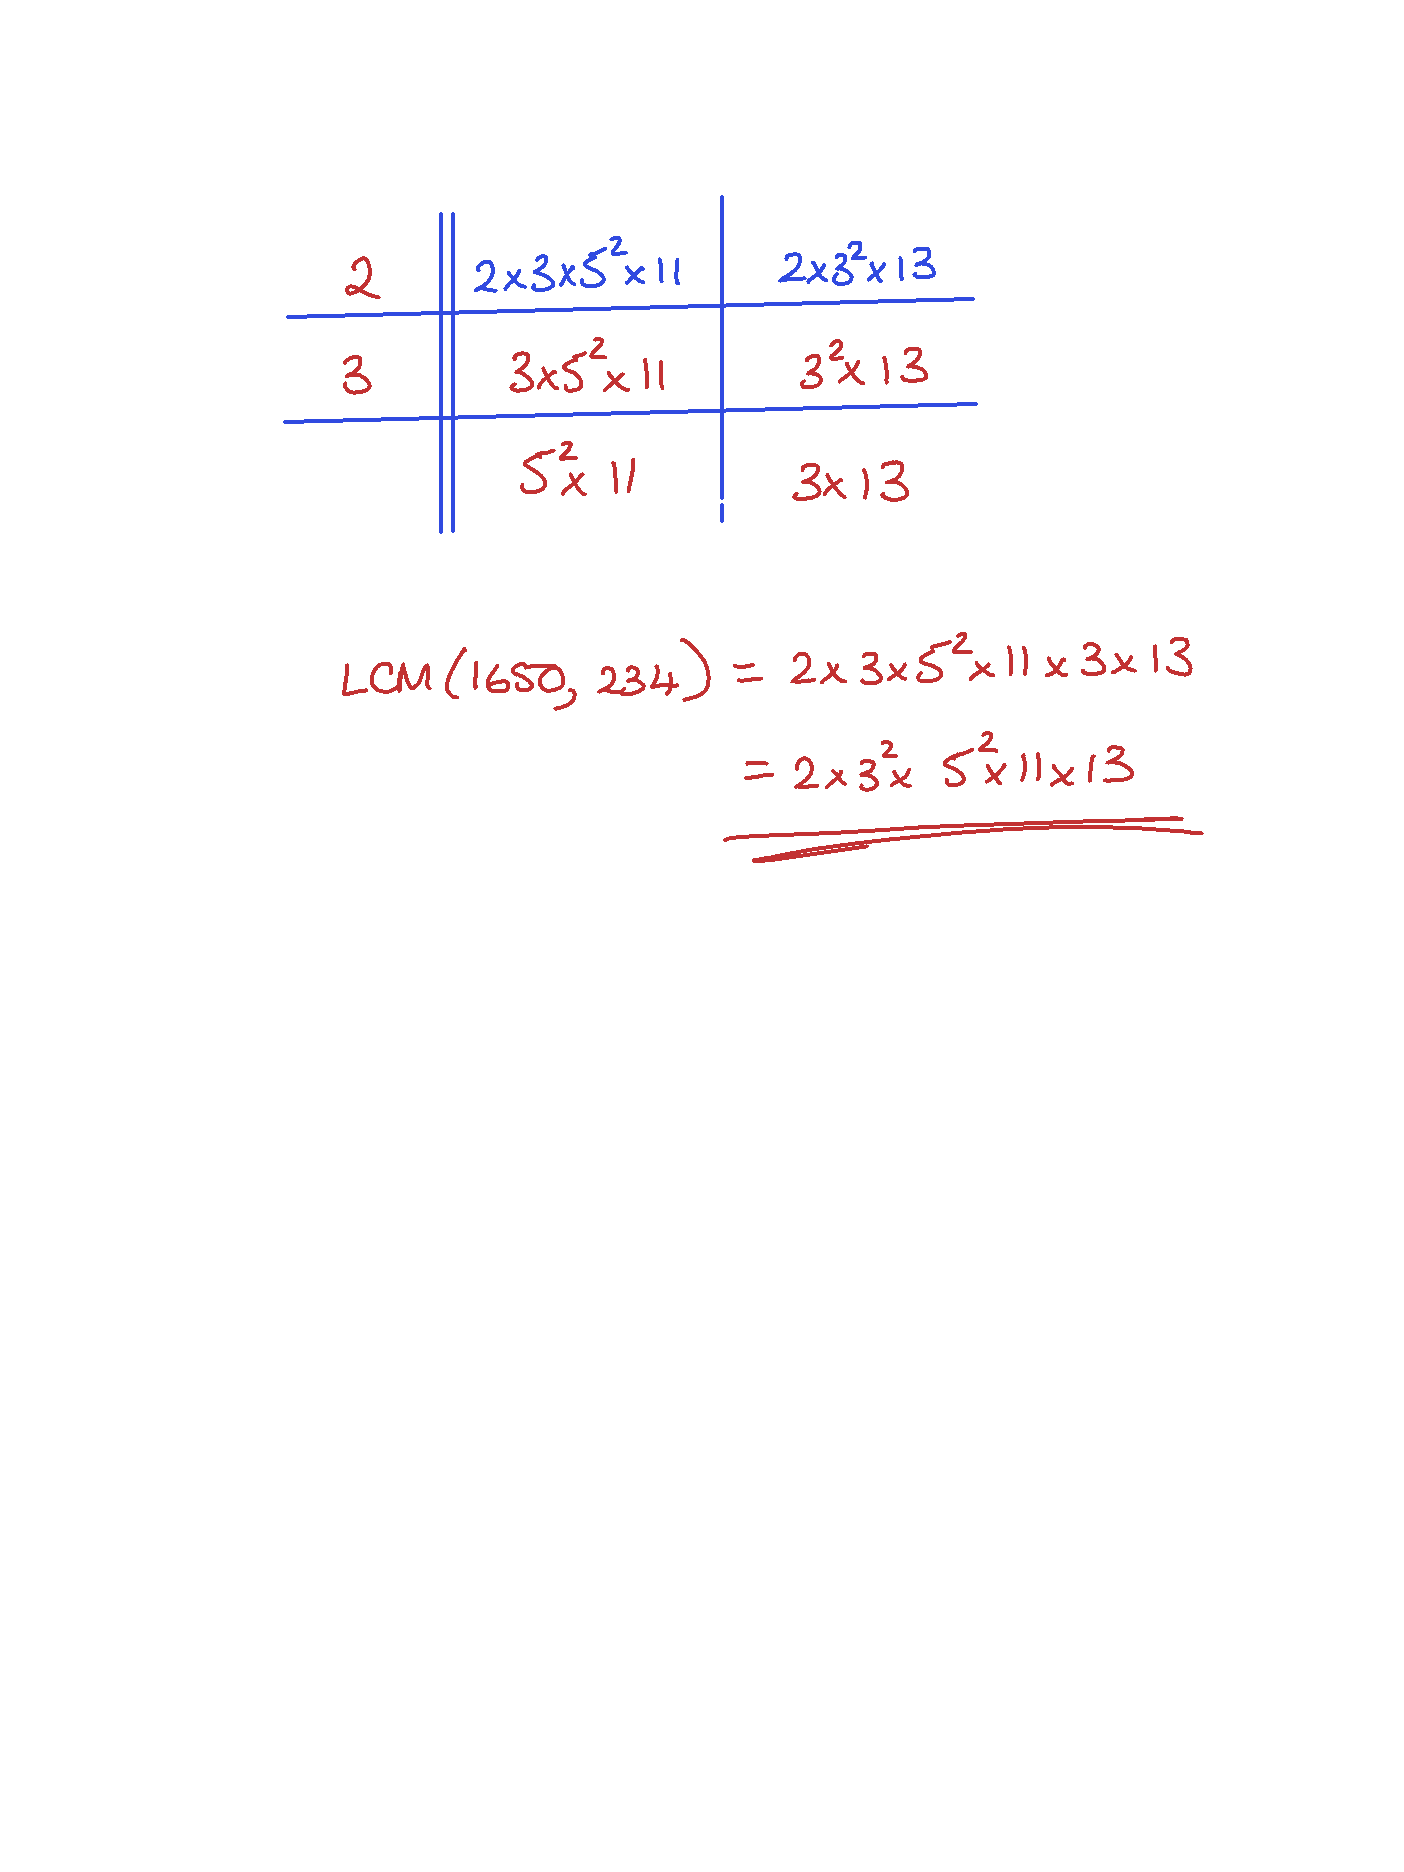 2 2×3×5²×11 2×3²×13
3 3×5²×11 3²×13
5²×11 3×13
LCM(1650, 234) = 2×3×5²×11×3×13
= 2×3²× 5²×11×13